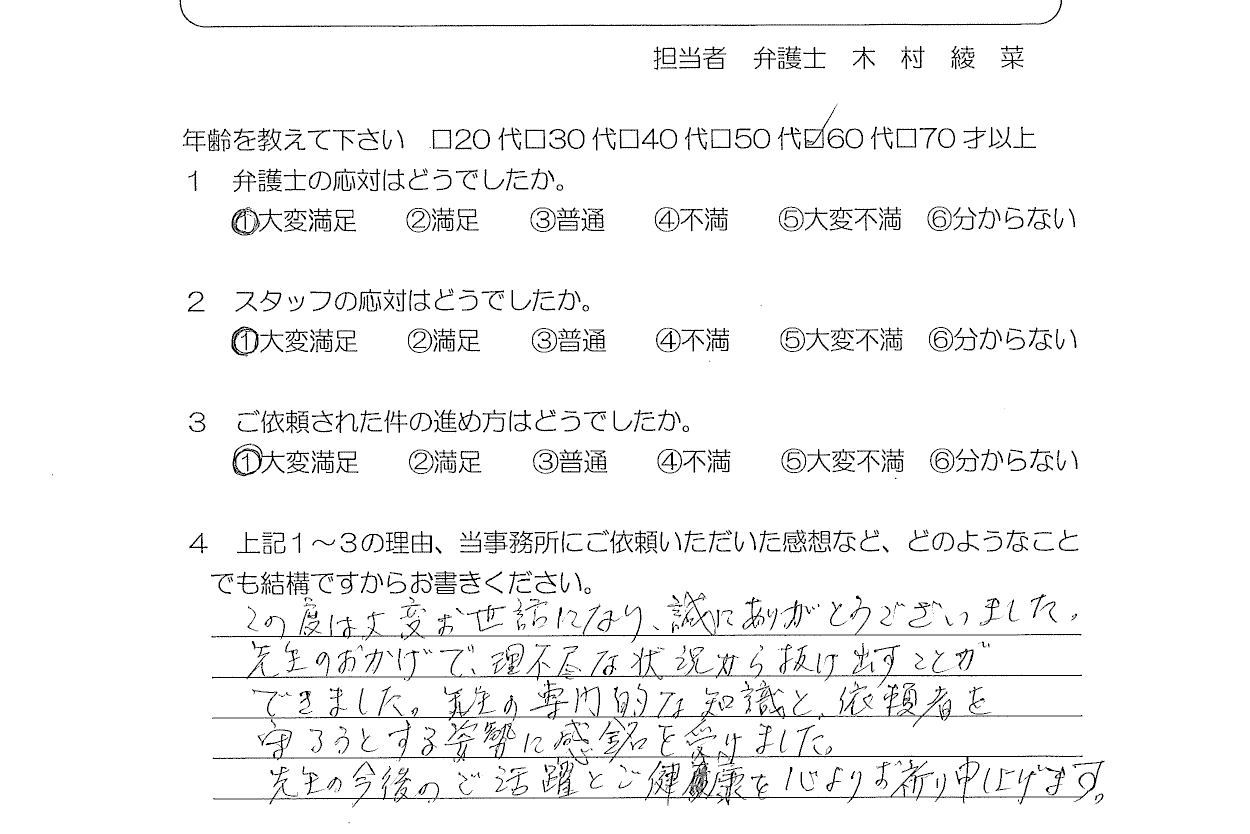 担当者　弁護士　木　村　綾　菜
年齢を教えて下さい　□20代□30代□40代□50代☑60代□70才以上
１　弁護士の応対はどうでしたか。
①大変満足　②満足　③普通　④不満　⑤大変不満　⑥分からない
２　スタッフの応対はどうでしたか。
①大変満足　②満足　③普通　④不満　⑤大変不満　⑥分からない
３　ご依頼された件の進め方はどうでしたか。
①大変満足　②満足　③普通　④不満　⑤大変不満　⑥分からない
４　上記１～３の理由、当事務所にご依頼いただいた感想など、どのようなこと
でも結構ですからお書きください。
この度は大変お世話になり、誠にありがとうございました。
先生のおかげで、理不尽な状況から抜け出すことが
できました。先生の専門的な知識と、依頼者を
守ろうとする姿勢に感銘を受けました。
先生の今後のご活躍とご健康を心よりお祈り申し上げます。